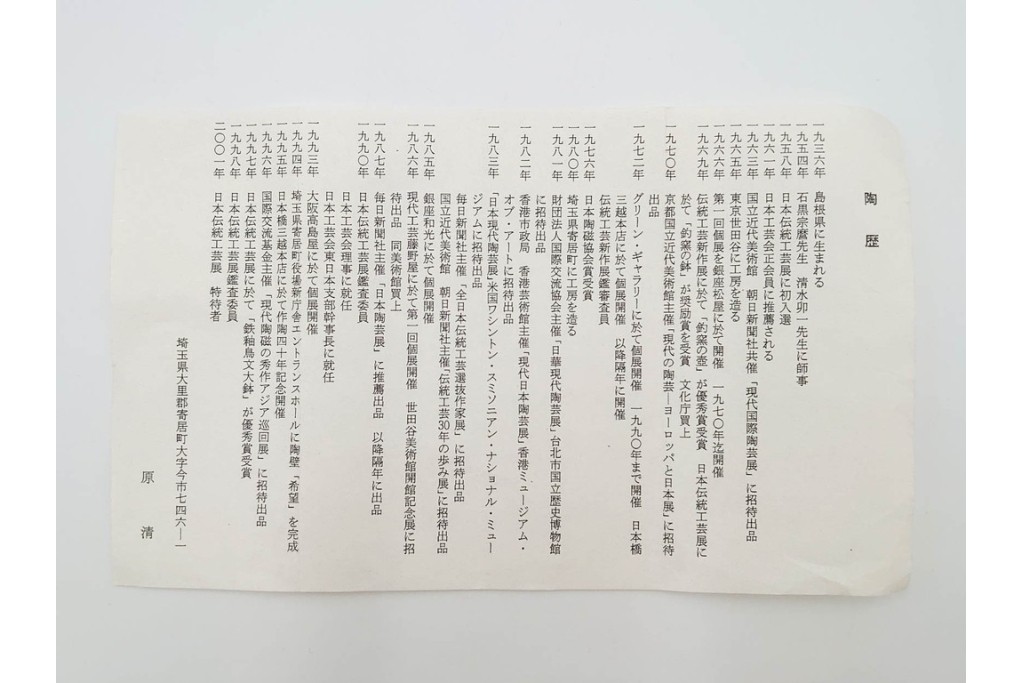 陶歴
一九三六年 島根県に生まれる
一九五四年 石黒宗麿先生 清水卯一先生に師事
一九五八年 日本伝統工芸展に初入選
一九六一年 日本工芸会正会員に推薦される
一九六三年 国立近代美術館 朝日新聞社共催「現代国際陶芸展」に招待出品
一九六五年 東京世田谷に工房を造る
一九六六年 第一回個展を銀座松屋にて開催 一九七〇年迄開催
一九六九年 伝統工芸新作展に於て「釣窯の壺」が優秀賞受賞 日本伝統工芸展に
於て「釣窯の鉢」が奨励賞を受賞 文化庁買上
一九七〇年 京都国立近代美術館主催「現代の陶芸―ヨーロッパと日本展」に招待
出品
一九七二年 グリーン・ギャラリーに於て個展開催 一九九〇年まで開催 日本橋
三越本店に於て個展開催 以降隔年に開催
伝統工芸新作展鑑査員
一九七六年 日本陶磁協会賞受賞
一九八〇年 埼玉県寄居町に工房を造る
一九八一年 財団法人国際交流協会主催「日華現代陶芸展」台北市国立歴史博物館
に招待出品
一九八二年 香港市政局 香港芸術館主催「現代日本陶芸展」香港ミュージアム・
オブ・アートに招待出品
一九八三年 「日本現代陶芸展」米国ワシントン・スミソニアン・ナショナル・ミュー
ジアムに招待出品
毎日新聞社主催「全日本伝統工芸選抜作家展」に招待出品
国立近代美術館 朝日新聞社主催「伝統工芸30年の歩み展」に招待出品
一九八五年 銀座和光にて個展開催
一九八六年 現代工芸藤野屋にて第一回個展開催 世田谷美術館開館記念展に招
待出品 同美術館買上
一九八七年 毎日新聞社主催「日本陶芸展」に推薦出品 以降隔年に出品
一九九〇年 日本伝統工芸展鑑査委員
日本工芸会理事に就任
日本工芸会東日本支部幹事長に就任
一九九三年 大阪高島屋に於て個展開催
一九九四年 埼玉県寄居町役場新庁舎エントランスホールに陶壁「希望」を完成
一九九五年 日本橋三越本店に於て作陶四十年記念開催
一九九六年 国際交流基金主催「現代陶磁の秀作アジア巡回展」に招待出品
一九九七年 日本伝統工芸展に於て、「鉄釉鳥文大鉢」が優秀賞受賞
一九九八年 日本伝統工芸展鑑査委員
二〇〇一年 日本伝統工芸展 特待者
埼玉県大里郡寄居町大字今市七四六―一
原 清